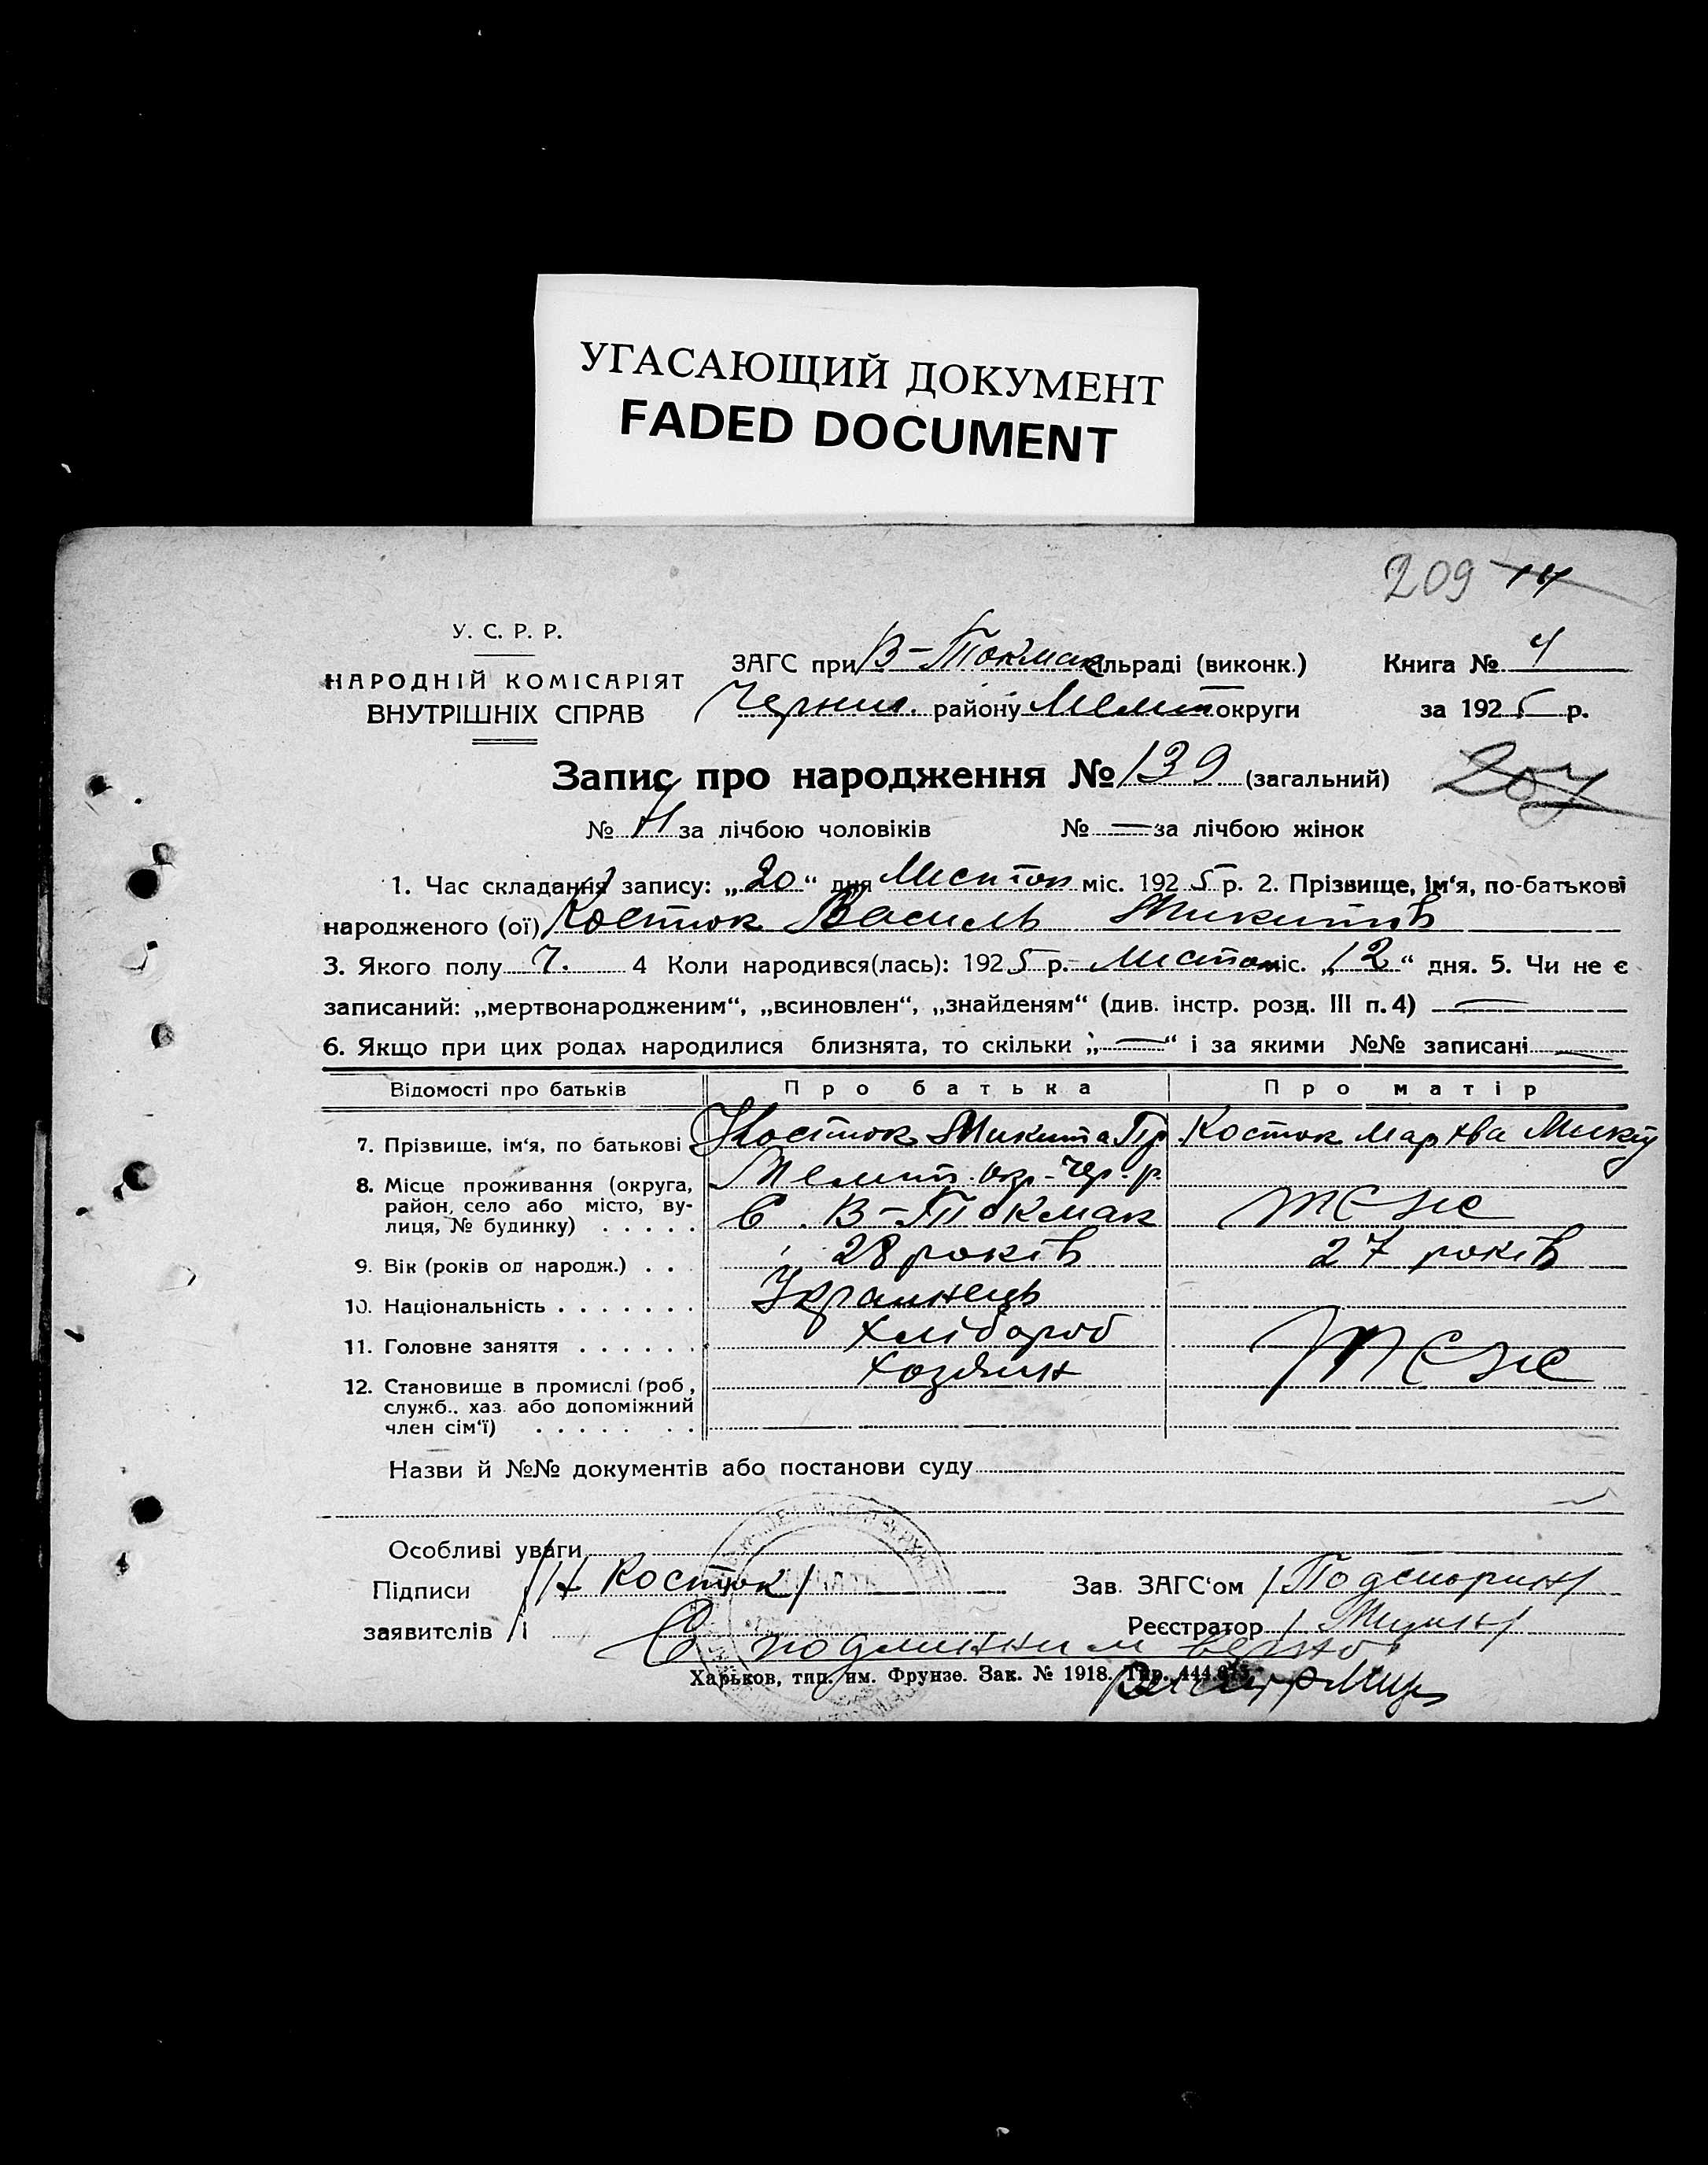 УГАСАЮЩИЙ ДОКУМЕНТ
FADED DOCUMENT
209
У. С. Р. Р.
НАРОДНІЙ КОМІСАРІЯТ
ВНУТРІШНІХ СПРАВ
ЗАГС при В-Токмак сільраді (виконк.) Книга № 4
Черниг. району Мелит округи за 1925 р.
Запис про народження № 139 (загальний)
207
№ за лічбою чоловіків № — за лічбою жінок
1. Час складання запису: „20“ дня Листоп міс. 1925 р. 2. Прізвище, ім‘я, по-батькові
народженого (ої) Косток Василь Микитов
3. Якого полу Ч. 4 Коли народився(лась): 1925 р. Листоп міс. „12“ дня. 5. Чи не є
записаний: „мертвонародженим“, „всиновлен“, „знайденям“ (див. інстр. розд. III п. 4) —
6. Якщо при цих родах народилися близнята, то скільки „—“ і за якими №№ записані —
Відомості про батьків Про батька Про матір
7. Прізвище, ім‘я, по батькові Косток Микита Гр Косток Марфа Микит
8. Місце проживання (округа, район, село або місто, вулиця, № будинку) Мелит. окр. Чер. р.
С. В-Токмак теже
9. Вік (років од народж.) 28 років 27 років
10. Національність Украинець
11. Головне заняття хлібороб теже
12. Становище в промислі (роб., служб., хаз. або допоміжний член сім‘ї) хозяин
Назви й №№ документів або постанови суду
Особливі уваги
Підписи / Н Косток / Зав. ЗАГС‘ом
заявителів Реєстратор
С подлинним верно
Харьков, тип. им. Фрунзе. Зак. № 1918. Тир.